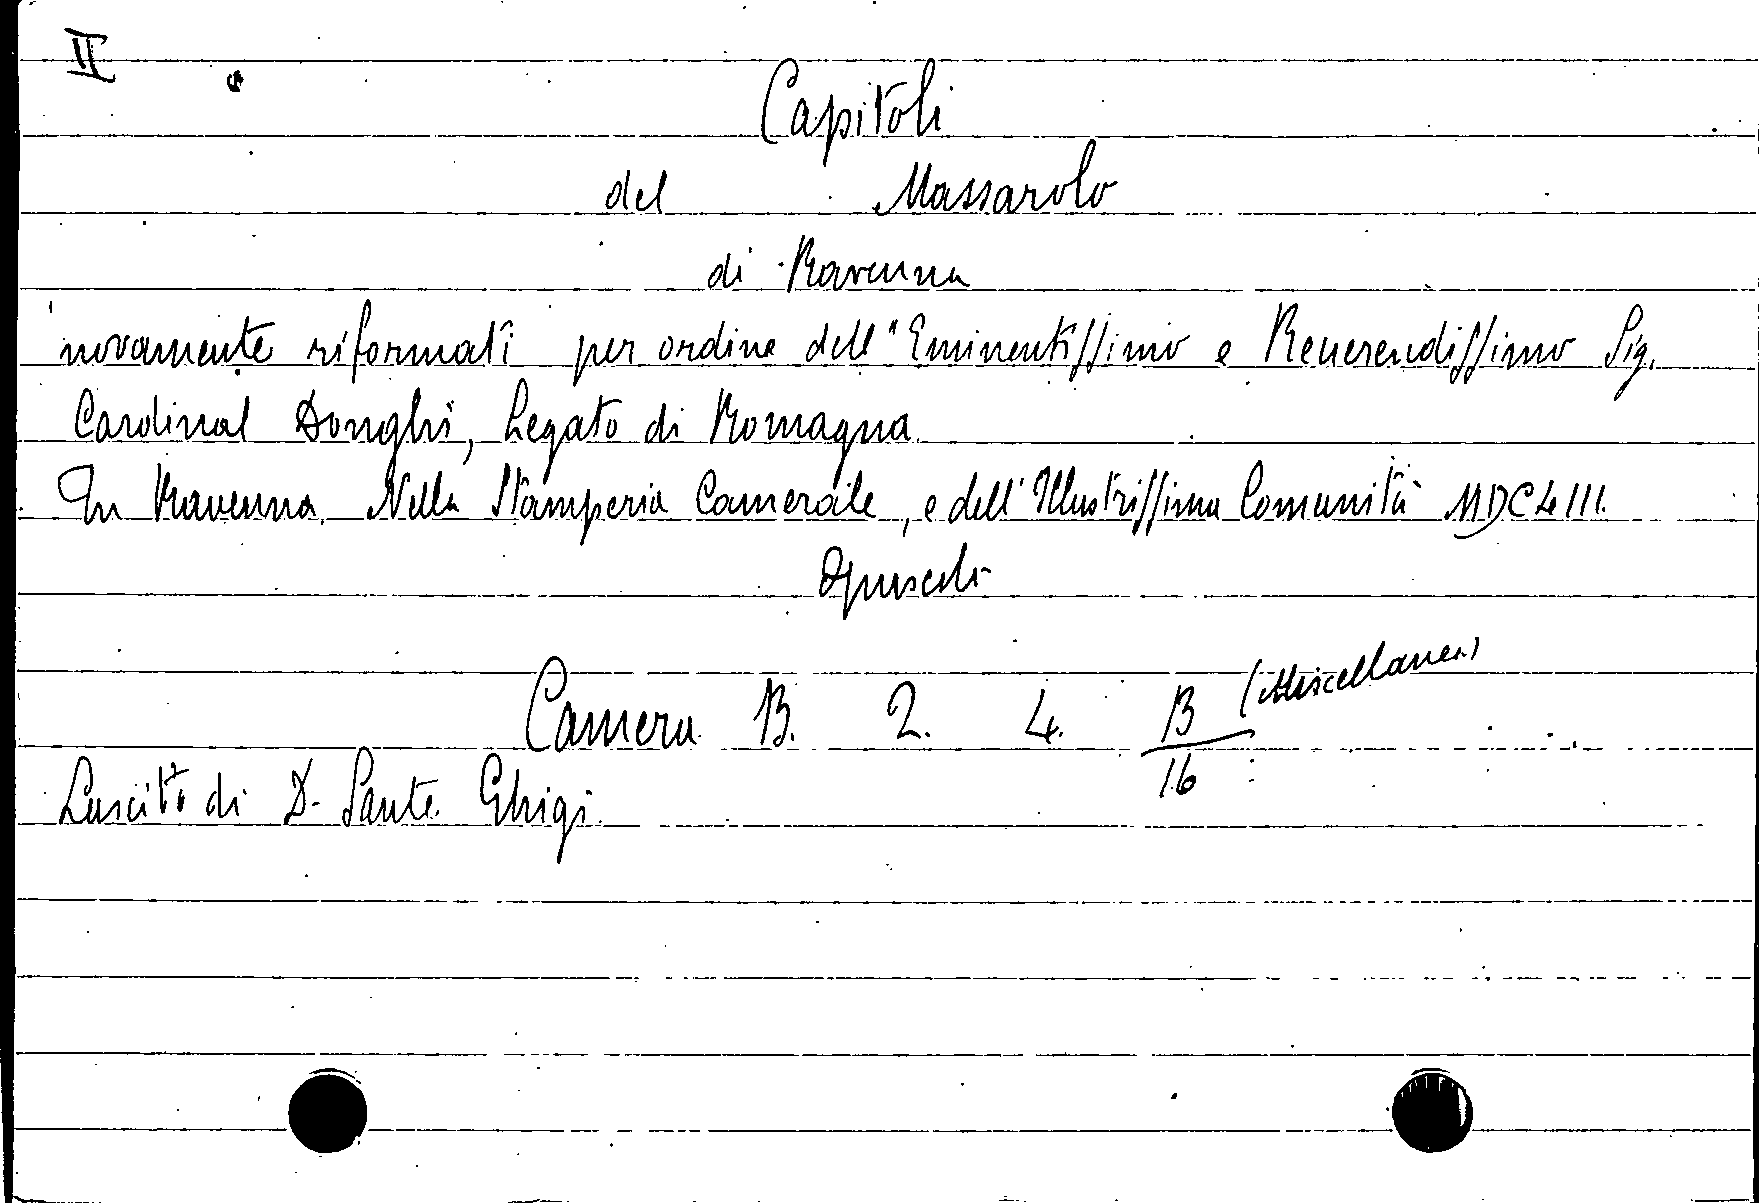 II
Capitoli
del Massarolo
di Ravenna
novamente riformati per ordine dell'Eminentissimo e Reuerendissimo Sig.
Cardinal Donghi, Legato di Romagna.
In Ravenna. Nella Stamperia Camerale, e dell'Illustrissima Comunità MDCLIII.
Opuscoli
Camera B. 2. 4. B/16 (Miscellanea)
Lascito di D. Sante Ghigi.